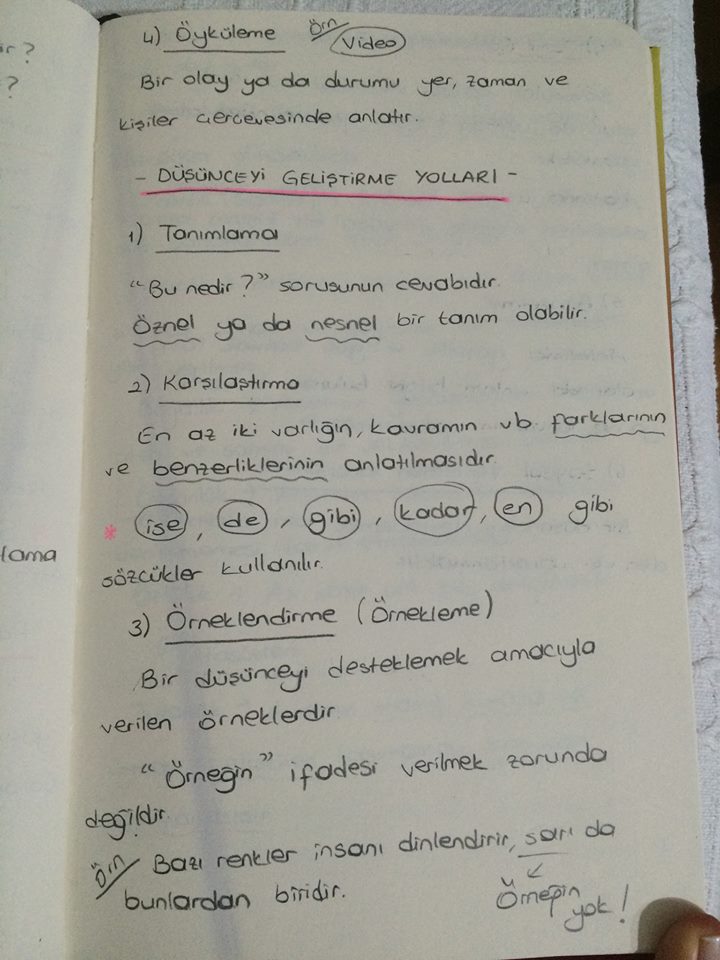 ir?
?
lama
4) Öyküleme Örn Video
Bir olay ya da durumu yer, zaman ve
kişiler çerçevesinde anlatır.
- DÜŞÜNCEYİ GELİŞTİRME YOLLARI -
1) Tanımlama
"Bu nedir?" sorusunun cevabıdır.
Öznel ya da nesnel bir tanım olabilir.
2) Karşılaştırma
En az iki varlığın, kavramın vb. farklarının
ve benzerliklerinin anlatılmasıdır.
* ise, de, gibi, kadar, en gibi
sözcükler kullanılır.
3) Örneklendirme (Örnekleme)
Bir düşünceyi desteklemek amacıyla
verilen örneklerdir
"Örneğin" ifadesi verilmek zorunda
değildir.
Örn Bazı renkler insanı dinlendirir, sarı da
bunlardan biridir.
Örneğin
yok!